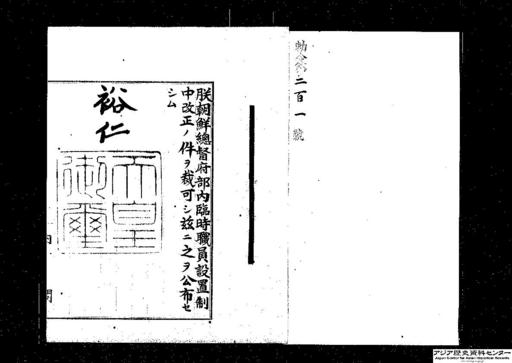 勅令第二百一號
朕朝鮮總督府部內臨時職員設置制
中改正ノ件ヲ裁可シ玆ニ之ヲ公布セ
シム
裕仁
天皇
御璽
内閣
アジア歴史資料センター
Japan Center for Asian Historical Records